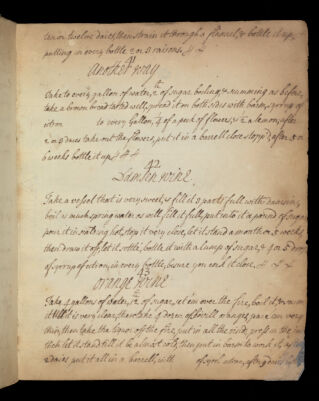 ten or twelve daies, then strain it through a flannel, & bottle it up,
putting in every bottle 2 or 3 raisons.
41
another way
Take to every gallon of water, of sugar boiling, & scumming as before,
take a brown bread tosted well, spread it on both sides with barm, syrop of
citron to every gallon, 1/4 of a peck of flowers, & 1/2 a lemon, after
2 or 3 daies take out the flowers, put it in a barrell close stop'd, after 5 or
6 weeks bottle it up
42
Damson wine.
Take a vessel that is very sweet, & fill it 3 parts full with damsins,
boil as much spring water as will fill it full, put into it a pound of sugar
pour it in scalding hot, stop it very close, let it stand a month or 5 weeks
then draw it off, let it settle, bottle it with a lump of sugar, & 4 or 5 drops
of syrop of citron, in every bottle, be sure you cork it close.
43
orange wine
Take 4 gallons of water, of sugar, set 'em over the fire, boil it, & scum
it till it is very clear, then take 4 dozen of sevill oranges, pare 'em very
thin, then take the liquor off the fire, put in all the rinds,
then let it stand till it be almost cold, then put in barm to work it,
2 daies put it all in a barrell, with of syrop citron, after 9 daies